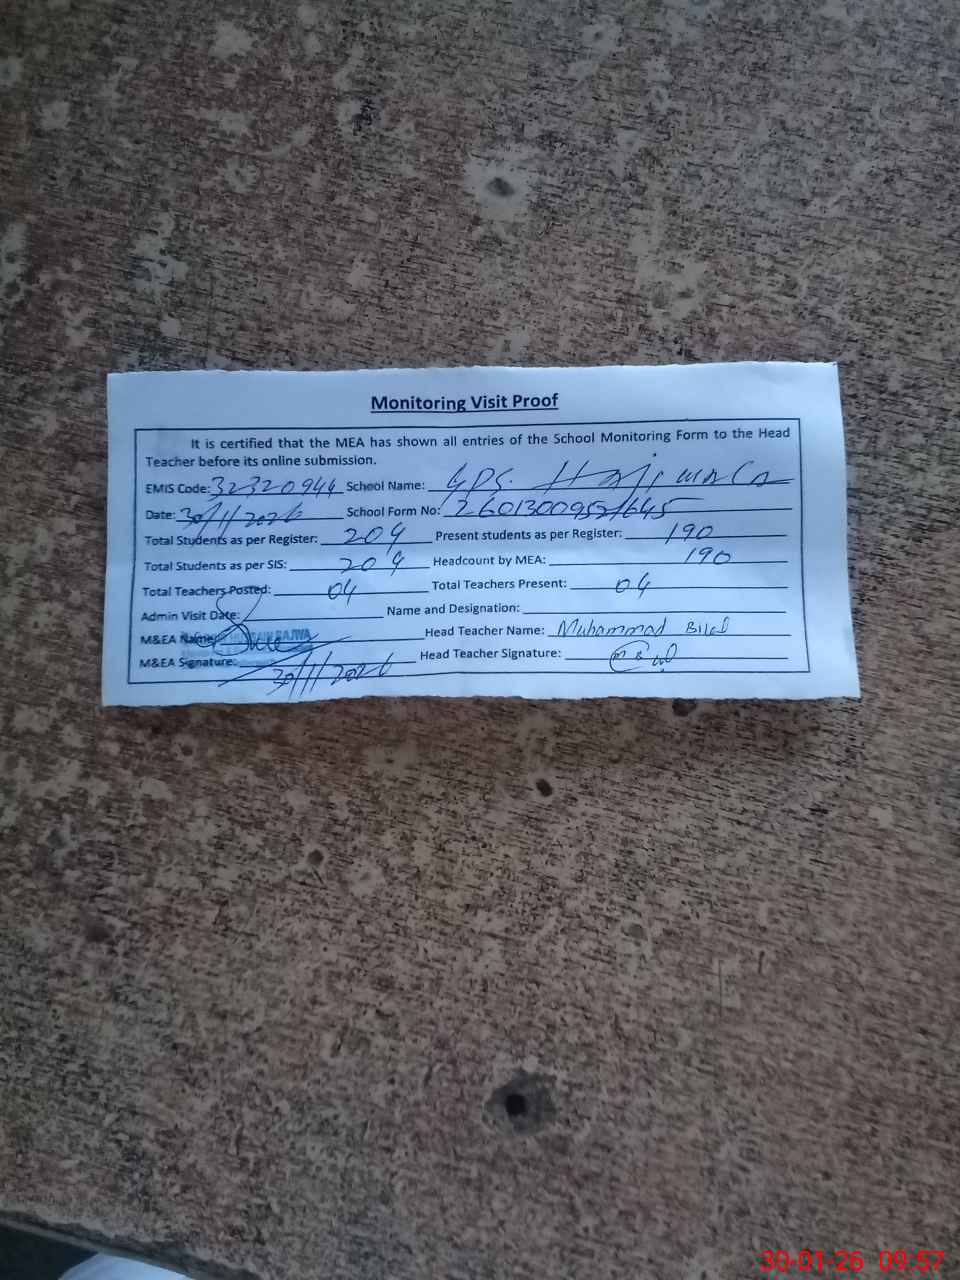 Monitoring Visit Proof
It is certified that the MEA has shown all entries of the School Monitoring Form to the Head
Teacher before its online submission.
EMIS Code: 32320944 School Name: GPS.
Date: 30/1/2026 School Form No: 2601300952/645
Total Students as per Register: 204 Present students as per Register: 190
Total Students as per SIS: 204 Headcount by MEA: 190
Total Teachers Posted: 04 Total Teachers Present: 04
Admin Visit Date: Name and Designation:
M&EA Name: BAJWA Head Teacher Name: Muhammad Bilal
M&EA Signature: 30/1/2026 Head Teacher Signature:
30-01-26 09:57